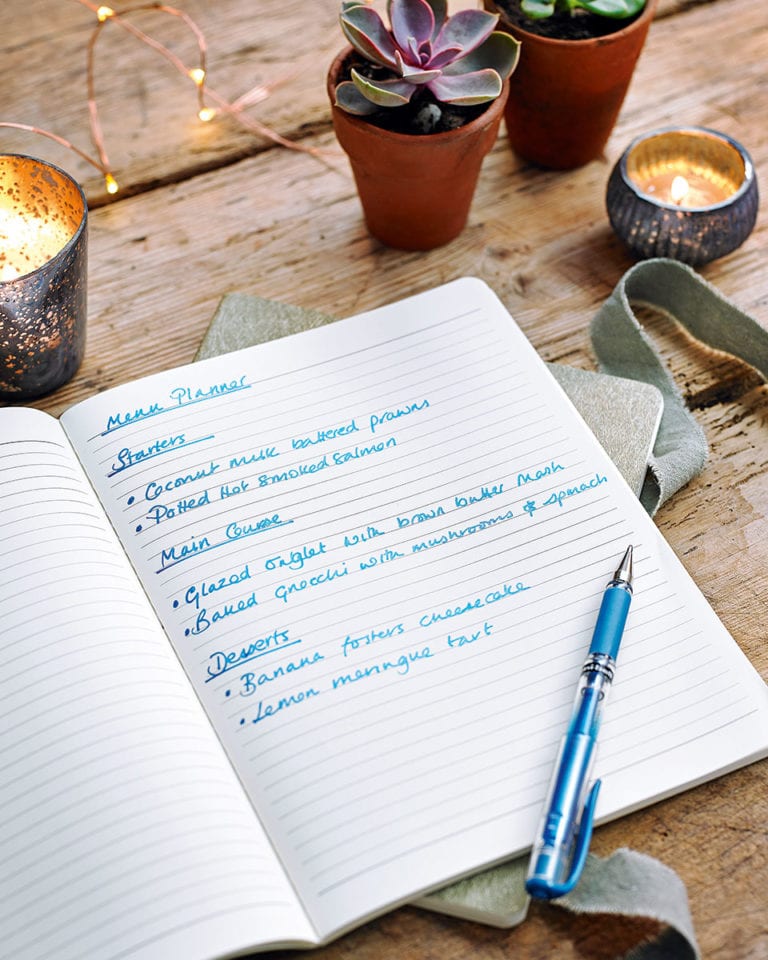 Menu Planner
Starters
• Coconut milk battered prawns
• Potted Hot Smoked Salmon
Main Course
• Glazed onglet with brown butter mash
• Baked Gnocchi with mushrooms & spinach
Desserts
• Banana fosters cheesecake
• Lemon meringue tart